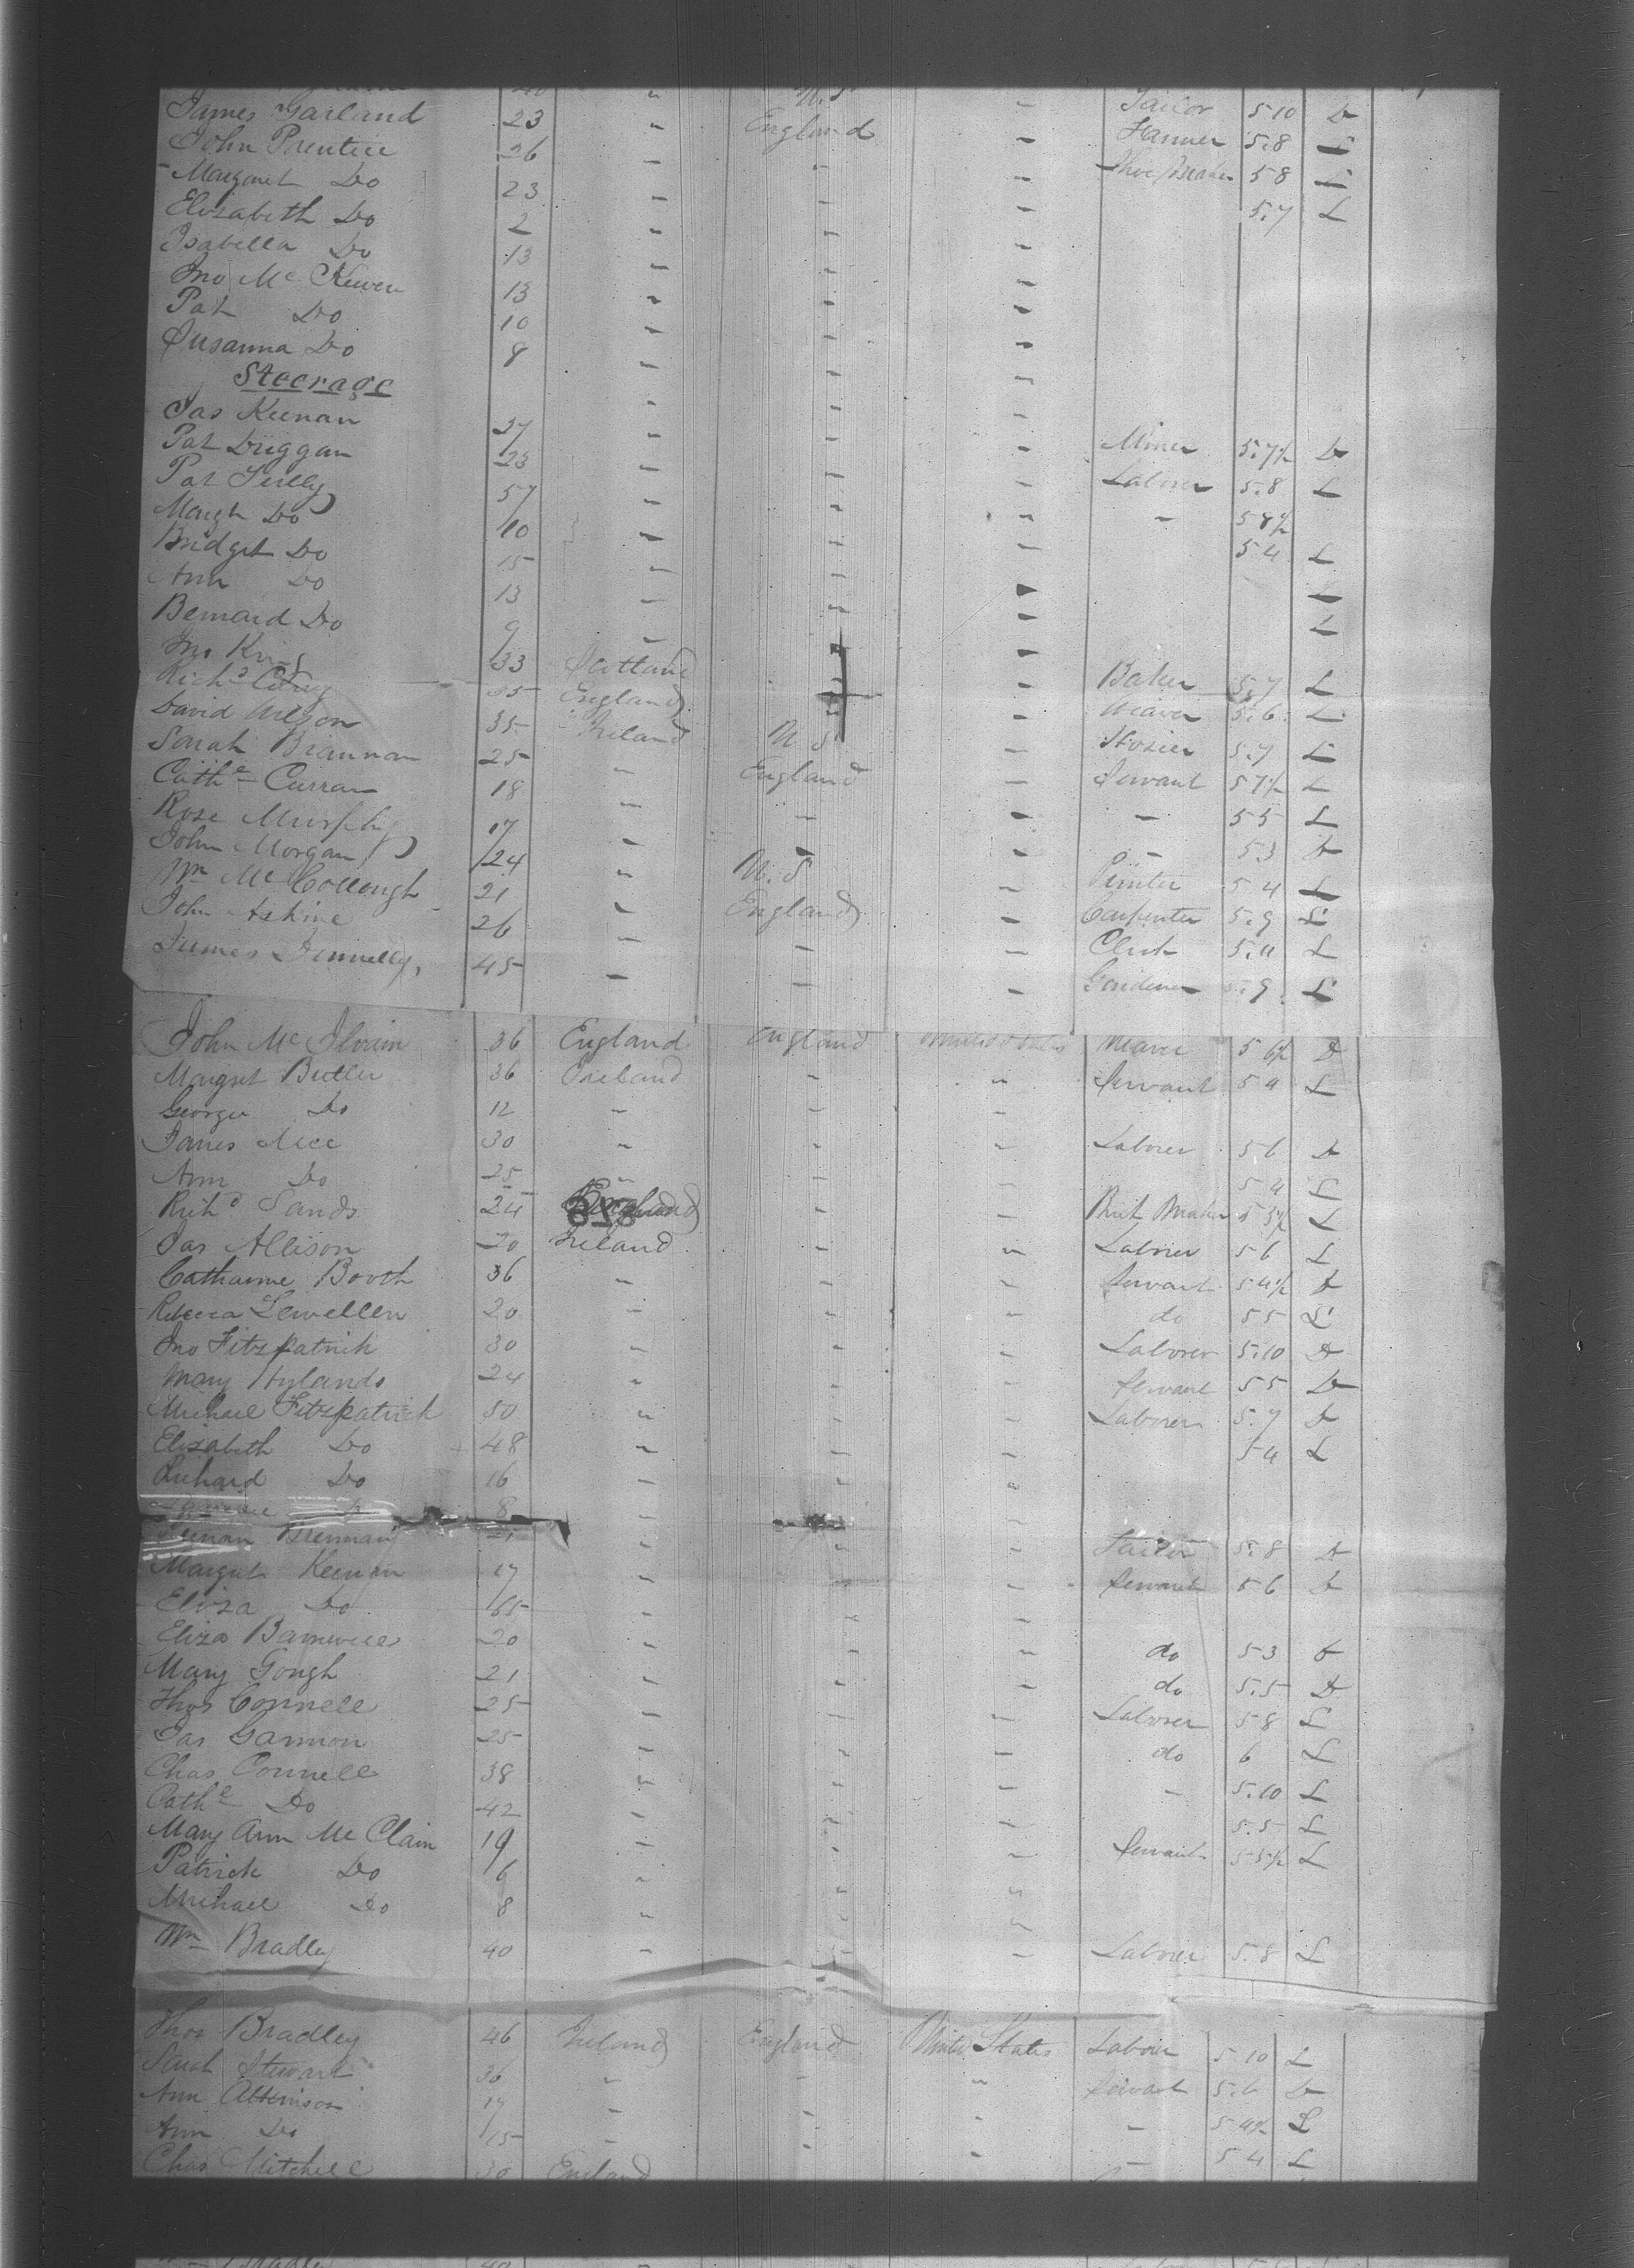 James Garland 23 " England " Tailor 5 10 D
John Prentice 26 " " " Farmer 5.8 L
Margaret Do 23 " " " Shoe Maker 5 8 L
Elizabeth Do 2 " " " 5.7 L
Isabella Do 13 " " "
Jno Mc Kewen 13 " " "
Pat Do 10 " " "
Susanna Do 8 " " "
Steerage
Jas Keenan 27 " " " Miner 5.7½ D
Pat Duggan 23 " " " Laborer 5.8 L
Pat Tully 57 " " " " 5 8½
Margt Do 10 " " " 5 4 L
Bridget Do 15 " " " L
Ann Do 13 " " " L
Bernard Do 9 " " "
Jno King 33 Scotland " " Baker 5.7 L
Richd 35 England " " Weaver 5.6 L
David Wilson 35 Ireland U S " Hosier 5.7 L
Sarah Brannon 25 " England " Servant 5 7½ L
Cathe Curran 18 " " " " 5 5 L
Rose Murphy 17 " " " " 5 3 D
John Morgan 24 " U. S " Printer 5 4 L
Wm Mc Collough 21 " England " Carpenter 5.9 L
John Askine 26 " " " Clerk 5.11 L
James Donnelly 45 " " " Gardener 5.9 L
John Mc Ilvain 36 England England United States Weaver 5 6½ D
Margret Butler 36 Ireland " " Servant 5 4 L
George Do 12 " " "
James 30 " " " Laborer 5 6 D
Ann Do 25 " " " 5 4 L
Richd Sands 24 England " " Brick Maker 5 3½ L
Jas Allison 20 Ireland " " Laborer 5 6 L
Catharine Booth 36 " " " Servant 5 4½ D
Rebecca Lewellen 20 " " " do 5 5 L
Jno Fitzpatrick 30 " " " Laborer 5.10 D
Mary Hylands 24 " " " Servant 5 5 D
Michael Fitzpatrick 50 " " " Laborer 5.7 D
Elizabeth Do 48 " " " 5 4 L
Richard Do 16 " " "
8 " "
Brennan " " " Tailor 5.8 D
Margret Keenan 17 " " " Servant 5 6 D
Eliza Do 65 " " "
Eliza 20 " " " do 5 3 D
Mary Gough 21 " " " do 5.5 D
Thos Connell 25 " " " Laborer 5 8 L
Jas Gannon 25 " " " do 6 L
Chas Connell 38 " " " " 5.10 L
Cathe Do 42 " " " 5.5 L
Mary Ann Mc Clain 19 " " " Servant 5 5½ L
Patrick Do 6 " " "
Michael Do 8 " " "
Wm Bradley 40 " " " Laborer 5.8 L
Thos Bradley 46 Ireland England United States Laborer 5 10 L
Sarah Stewart 36 " " " Servant 5.6 D
Ann Atkinson 17 " " " " 5 4½ L
Ann Do 15 " " " " 5 4 L
Chas Mitchell 30 England